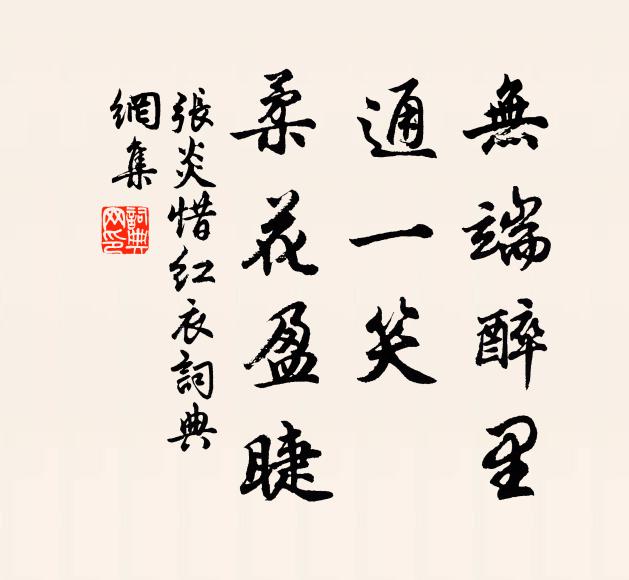 無端醉里
通一笑
柔花盈睫
張炎惜红衣詞典
網集
詞典
网印